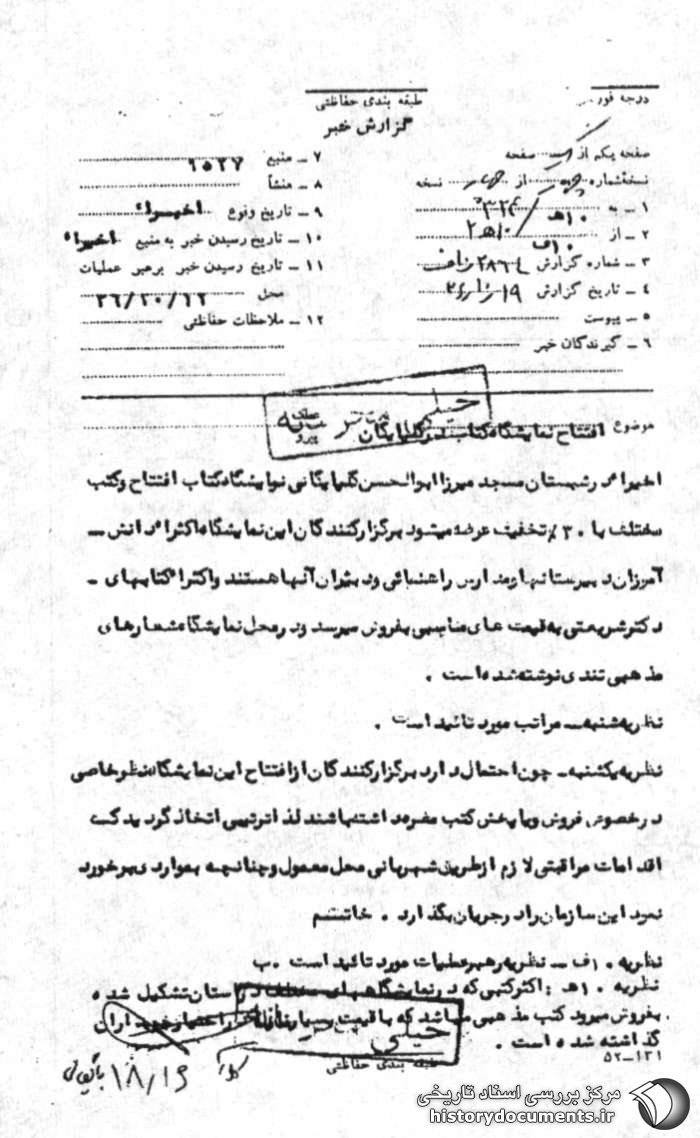 درجه فور
طبقه بندی حفاظتی
گزارش خبر
صفحه یکم از صفحه
نسخه شماره از نسخه
۱ - به ۱۰ هـ / ۳۲۴
۲ - از
۳ - شماره گزارش
۴ - تاریخ گزارش
۵ - پیوست
۶ - گیرندگان خبر
۷ - منبع ۲۵۲۷
۸ - منشأ
۹ - تاریخ وقوع اخیرا"
۱۰ - تاریخ رسیدن خبر به منبع اخیرا"
۱۱ - تاریخ رسیدن خبر برهبر عملیات
محل ۳۶/۱۰/۱۲
۱۲ - ملاحظات حفاظتی
خیلی
موضوع افتتاح نمایشگاه کتاب در گلپایگان
اخیرا" در شبستان مسجد میرزا ابوالحسن گلپایگانی نمایشگاه کتاب افتتاح و کتب
مختلف با ۳۰٪ تخفیف عرضه میشود برگزار کنندگان این نمایشگاه اکثرا" دانش -
آموزان دبیرستانها و مدارس راهنمائی و دبیران آنها هستند و اکثرا" کتابهای -
دکتر شریعتی به قیمت های مناسبی بفروش میرسد و در محل نمایشگاه شعارهای
مذهبی تندی نوشته شده است .
نظریه شنبه - مراتب مورد تائید است .
نظریه یکشنبه - چون احتمال دارد برگزار کنندگان از افتتاح این نمایشگاه نظر خاصی
در خصوص فروش و یا پخش کتب مضره داشته باشند لذا ترتیبی اتخاذ گردید که
اقدامات مراقبتی لازم از طریق شهربانی محل معمول و چنانچه بمواردی برخورد
نمود این سازمان را در جریان بگذارد . خاشتم
نظریه ۱۰ ف - نظریه رهبر عملیات مورد تائید است . ب
نظریه ۱۰ هـ : اکثر کتبی که در نمایشگاههای مختلف در استان تشکیل شده
بفروش میرود کتب مذهبی میباشد که با قیمت بسیار نازل در اختیار خریداران
گذاشته شده است .
خیلی
۵۲-۱۳۱
طبقه بندی حفاظتی
۱۸/۱۶
مرکز بررسی اسناد تاریخی
historydocuments.ir